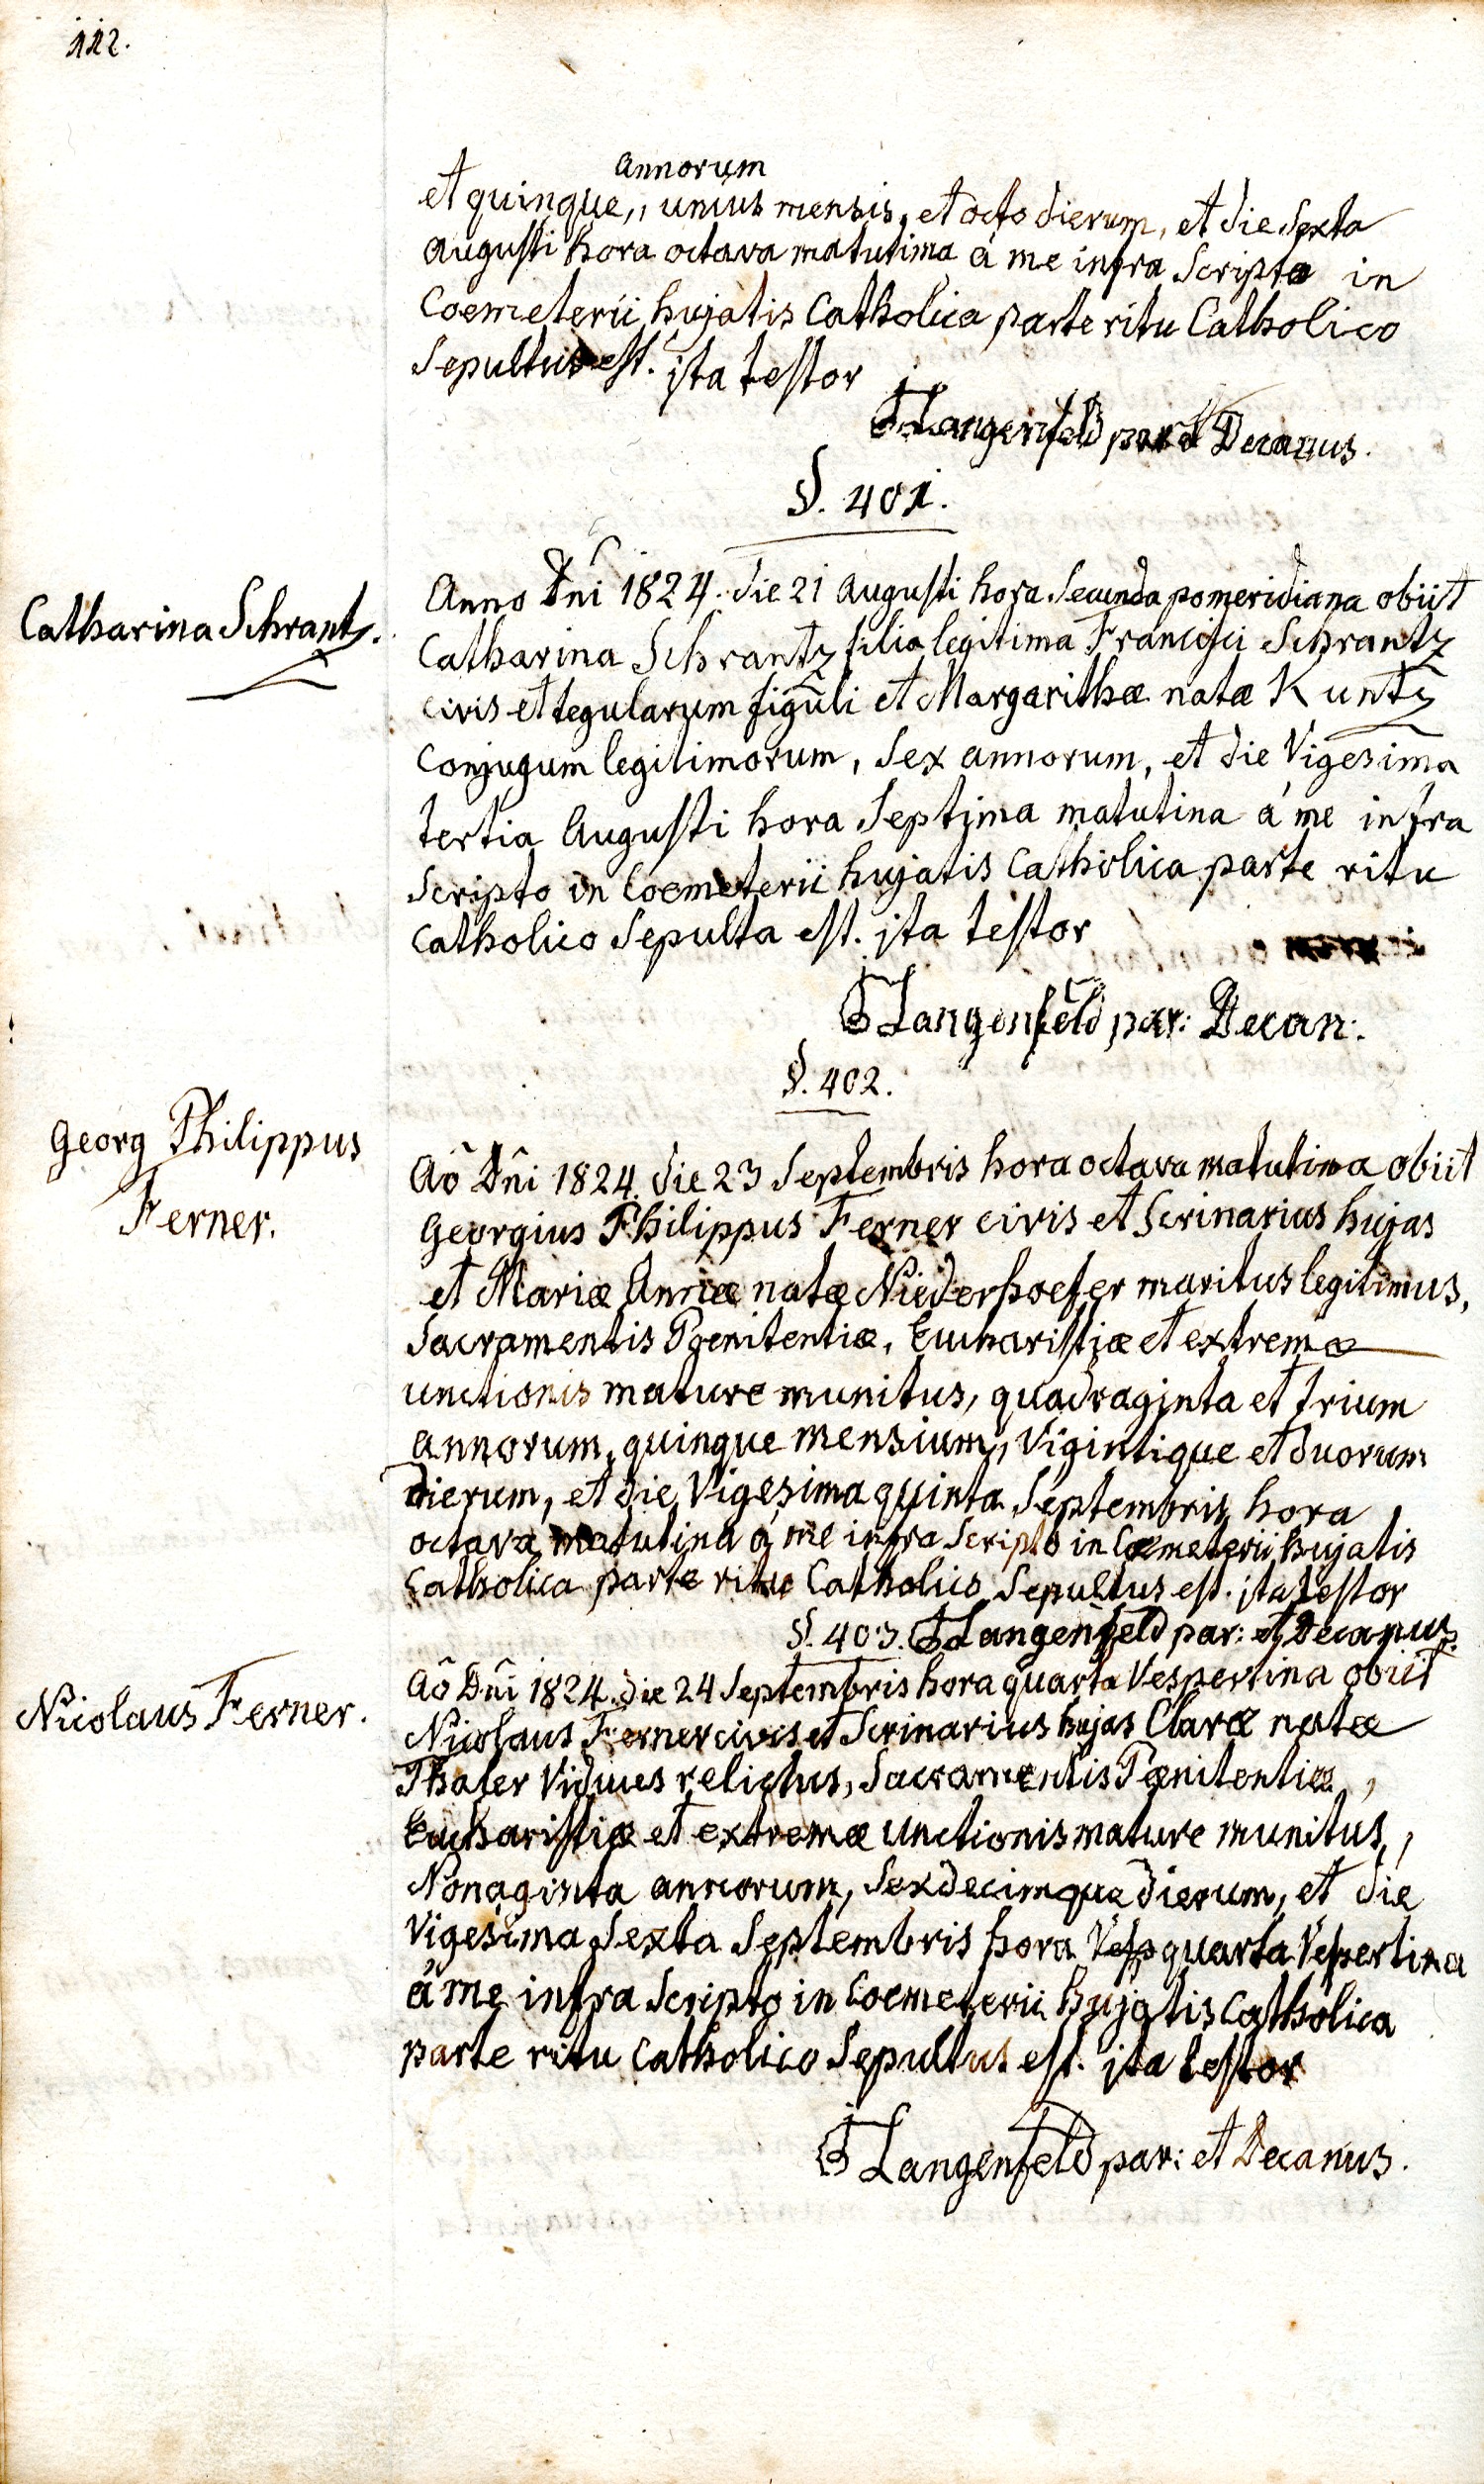 112.
Annorum
et quinque,, unius mensis, et octo dierum, et die sexta
augusti hora octava matutima á me infra scripto in
Coemeterii hujatis Catholica parte ritu Catholico
Sepultus est. ita testor
Langenfeld par et Decanus.
§. 401.
Catharina Schrantz.
Anno Dni 1824. die 21 augusti hora Secunda pomeridiana obiit
Catharina Schrantz filia legitima Francisci Schrantz
civis et tegularum figuli et Margarithæ natæ Kuntz
Conjugum legitimorum, Sex annorum, et die Vigesima
tertia Augusti hora Septima matutina á me infra
Scripto in Coemeterii hujatis Catholica parte ritu
Catholico Sepulta est. ita testor
Langenfeld par: Decan:
§. 402.
Georg Philippus
Ferner.
Aô Dñi 1824. die 23 Septembris hora octava matutina obiit
Georgius Philippus Ferner civis et Scrinarius hujas
et Mariæ Annæ natæ Niederhoefer maritus legitimus,
Sacramentis Poenitentiæ, Eucharistiæ et extremæ
unctionis mature munitus, quadraginta et trium
annorum, quinque mensium, Vigintique et duorum
dierum, et die Vigesima quinta Septembris hora
octava matutina á me infra Scripto in Coemeterii hujatis
Catholica parte ritu Catholico Sepultus est. ita testor
§. 403. Langenfeld par: et Decanus.
Nicolaus Ferner.
Aô Dñi 1824. die 24 Septembris hora quarta Vespertina obiit
Nicolaus Ferner civis et Scrinarius hujas Claræ natæ
Thaler Viduus relictus, Sacramentis Pœnitentiæ,
Eucharistiæ et extremæ unctionis mature munitus,
Nonaginta annorum, Sexdecimque dierum, et die
Vigesima Sexta Septembris hora Vesp quarta Vespertina
á me infra Scripto in Coemeterii hujatis Catholica
parte ritu Catholico Sepultus est. ita testor
Langenfeld par: et Decanus.